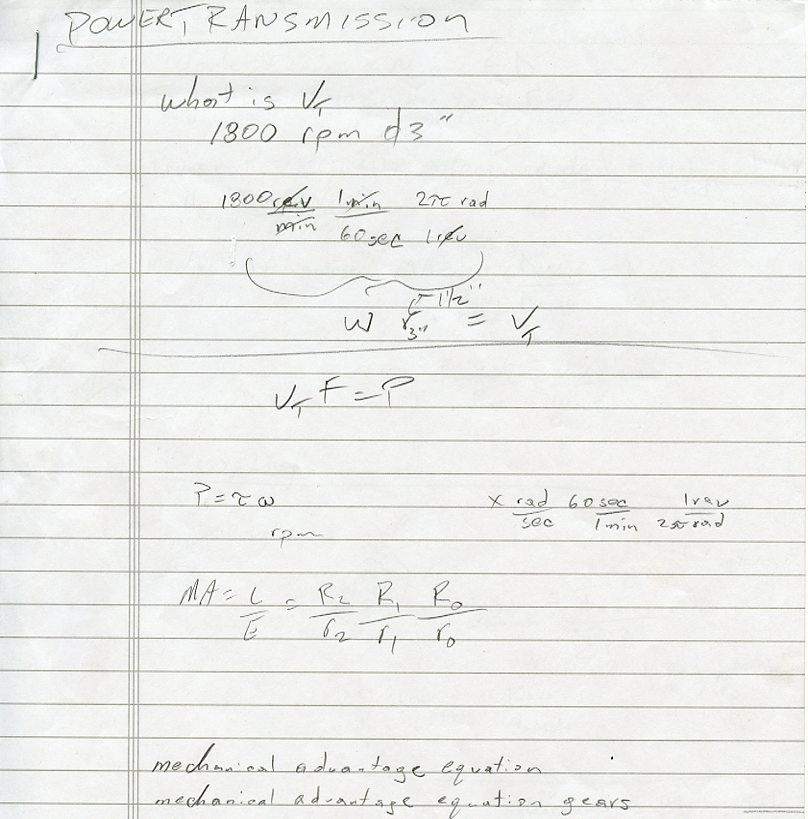 POWER TRANSMISSION
what is V_T
1800 rpm d3"
1800 rev/min 1min/60sec 2π rad/1rev
1 1/2"
ω r_3" = V_T
V_T F = P
P = τ ω
x rad/sec 60sec/1min 1rev/2π rad
rpm
MA = L/E = R_2/r_2 R_1/r_1 R_0/r_0
mechanical advantage equation
mechanical advantage equation gears